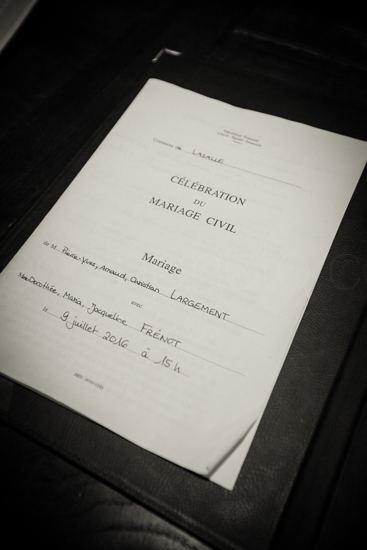 Commune de LASALLE
CÉLÉBRATION
DU
MARIAGE CIVIL
Mariage
de M. Pierre-Yves, Arnaud, Christian LARGEMENT
avec
Mme Dorothée, Maria, Jacqueline FRÉNOT
le 9 juillet 2016 à 15 h